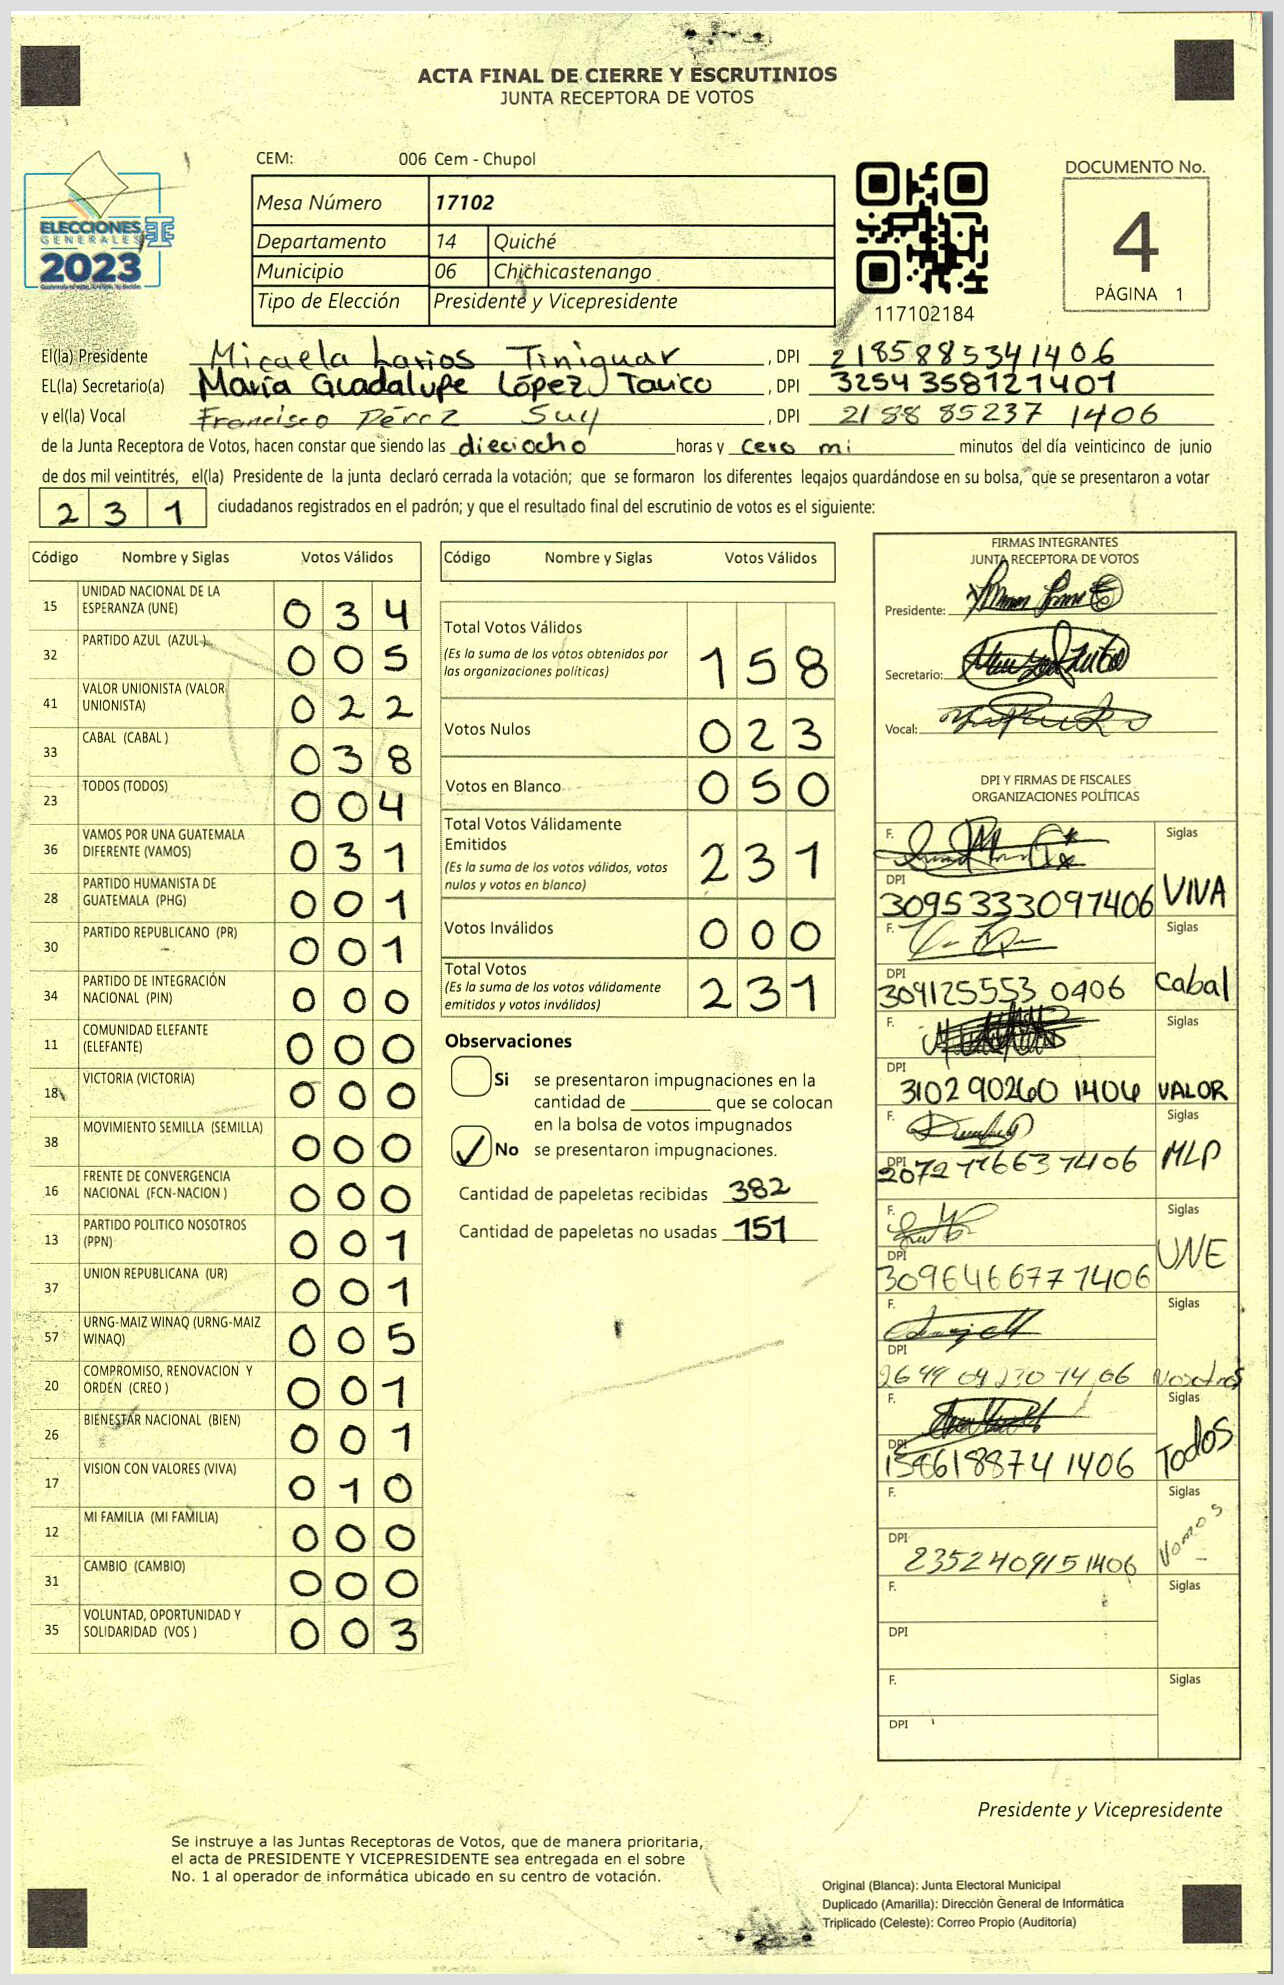 ACTA FINAL DE CIERRE Y ESCRUTINIOS
JUNTA RECEPTORA DE VOTOS
CEM: 006 Cem - Chupol
ELECCIONES
GENERALES
2023
Mesa Número 17102
Departamento 14 Quiché
Municipio 06 Chichicastenango
Tipo de Elección Presidente y Vicepresidente
117102184
DOCUMENTO No.
4
PÁGINA 1
El(la) Presidente Micaela Larios Tiniguar , DPI 2185885341406
EL(la) Secretario(a) María Guadalupe López Tauico , DPI 3254358121401
y el(la) Vocal Francisco Pérez Suy , DPI 2188 85237 1406
de la Junta Receptora de Votos, hacen constar que siendo las dieciocho horas y cero mi minutos del día veinticinco de junio
de dos mil veintitrés, el(la) Presidente de la junta declaró cerrada la votación; que se formaron los diferentes legajos quardándose en su bolsa, que se presentaron a votar
231 ciudadanos registrados en el padrón; y que el resultado final del escrutinio de votos es el siguiente:
Código Nombre y Siglas Votos Válidos
15 UNIDAD NACIONAL DE LA
ESPERANZA (UNE) 034
32 PARTIDO AZUL (AZUL) 005
41 VALOR UNIONISTA (VALOR
UNIONISTA) 022
33 CABAL (CABAL ) 038
23 TODOS (TODOS) 004
36 VAMOS POR UNA GUATEMALA
DIFERENTE (VAMOS) 031
28 PARTIDO HUMANISTA DE
GUATEMALA (PHG) 001
30 PARTIDO REPUBLICANO (PR) 001
34 PARTIDO DE INTEGRACIÓN
NACIONAL (PIN) 000
11 COMUNIDAD ELEFANTE
(ELEFANTE) 000
18 VICTORIA (VICTORIA) 000
38 MOVIMIENTO SEMILLA (SEMILLA) 000
16 FRENTE DE CONVERGENCIA
NACIONAL (FCN-NACION ) 000
13 PARTIDO POLITICO NOSOTROS
(PPN) 001
37 UNION REPUBLICANA (UR) 001
57 URNG-MAIZ WINAQ (URNG-MAIZ
WINAQ) 005
20 COMPROMISO, RENOVACION Y
ORDEN (CREO ) 001
26 BIENESTAR NACIONAL (BIEN) 001
17 VISION CON VALORES (VIVA) 010
12 MI FAMILIA (MI FAMILIA) 000
31 CAMBIO (CAMBIO) 000
35 VOLUNTAD, OPORTUNIDAD Y
SOLIDARIDAD (VOS ) 003
Código Nombre y Siglas Votos Válidos
Total Votos Válidos
(Es la suma de los votos obtenidos por
las organizaciones políticas) 158
Votos Nulos 023
Votos en Blanco 050
Total Votos Válidamente
Emitidos
(Es la suma de los votos válidos, votos
nulos y votos en blanco) 231
Votos Inválidos 000
Total Votos
(Es la suma de los votos válidamente
emitidos y votos inválidos) 231
Observaciones
Si se presentaron impugnaciones en la
cantidad de ________ que se colocan
en la bolsa de votos impugnados
✓ No se presentaron impugnaciones.
Cantidad de papeletas recibidas 382
Cantidad de papeletas no usadas 151
FIRMAS INTEGRANTES
JUNTA RECEPTORA DE VOTOS
Presidente:
Secretario:
Vocal:
DPI Y FIRMAS DE FISCALES
ORGANIZACIONES POLÍTICAS
F. Siglas
DPI
3095333097406 VIVA
F. Siglas
DPI
309125553 0406 Cabal
F. Siglas
DPI
310290260 1406 VALOR
F. Siglas
DPI
MLP
F. Siglas
DPI
3096466771406 UNE
F. Siglas
DPI
Nosotros
F. Siglas
DPI
1586188741406 TodoS
F. Siglas
DPI
2352409151406 Vamos
F. Siglas
DPI
F. Siglas
DPI
Presidente y Vicepresidente
Se instruye a las Juntas Receptoras de Votos, que de manera prioritaria,
el acta de PRESIDENTE Y VICEPRESIDENTE sea entregada en el sobre
No. 1 al operador de informática ubicado en su centro de votación.
Original (Blanca): Junta Electoral Municipal
Duplicado (Amarilla): Dirección General de Informática
Triplicado (Celeste): Correo Propio (Auditoría)